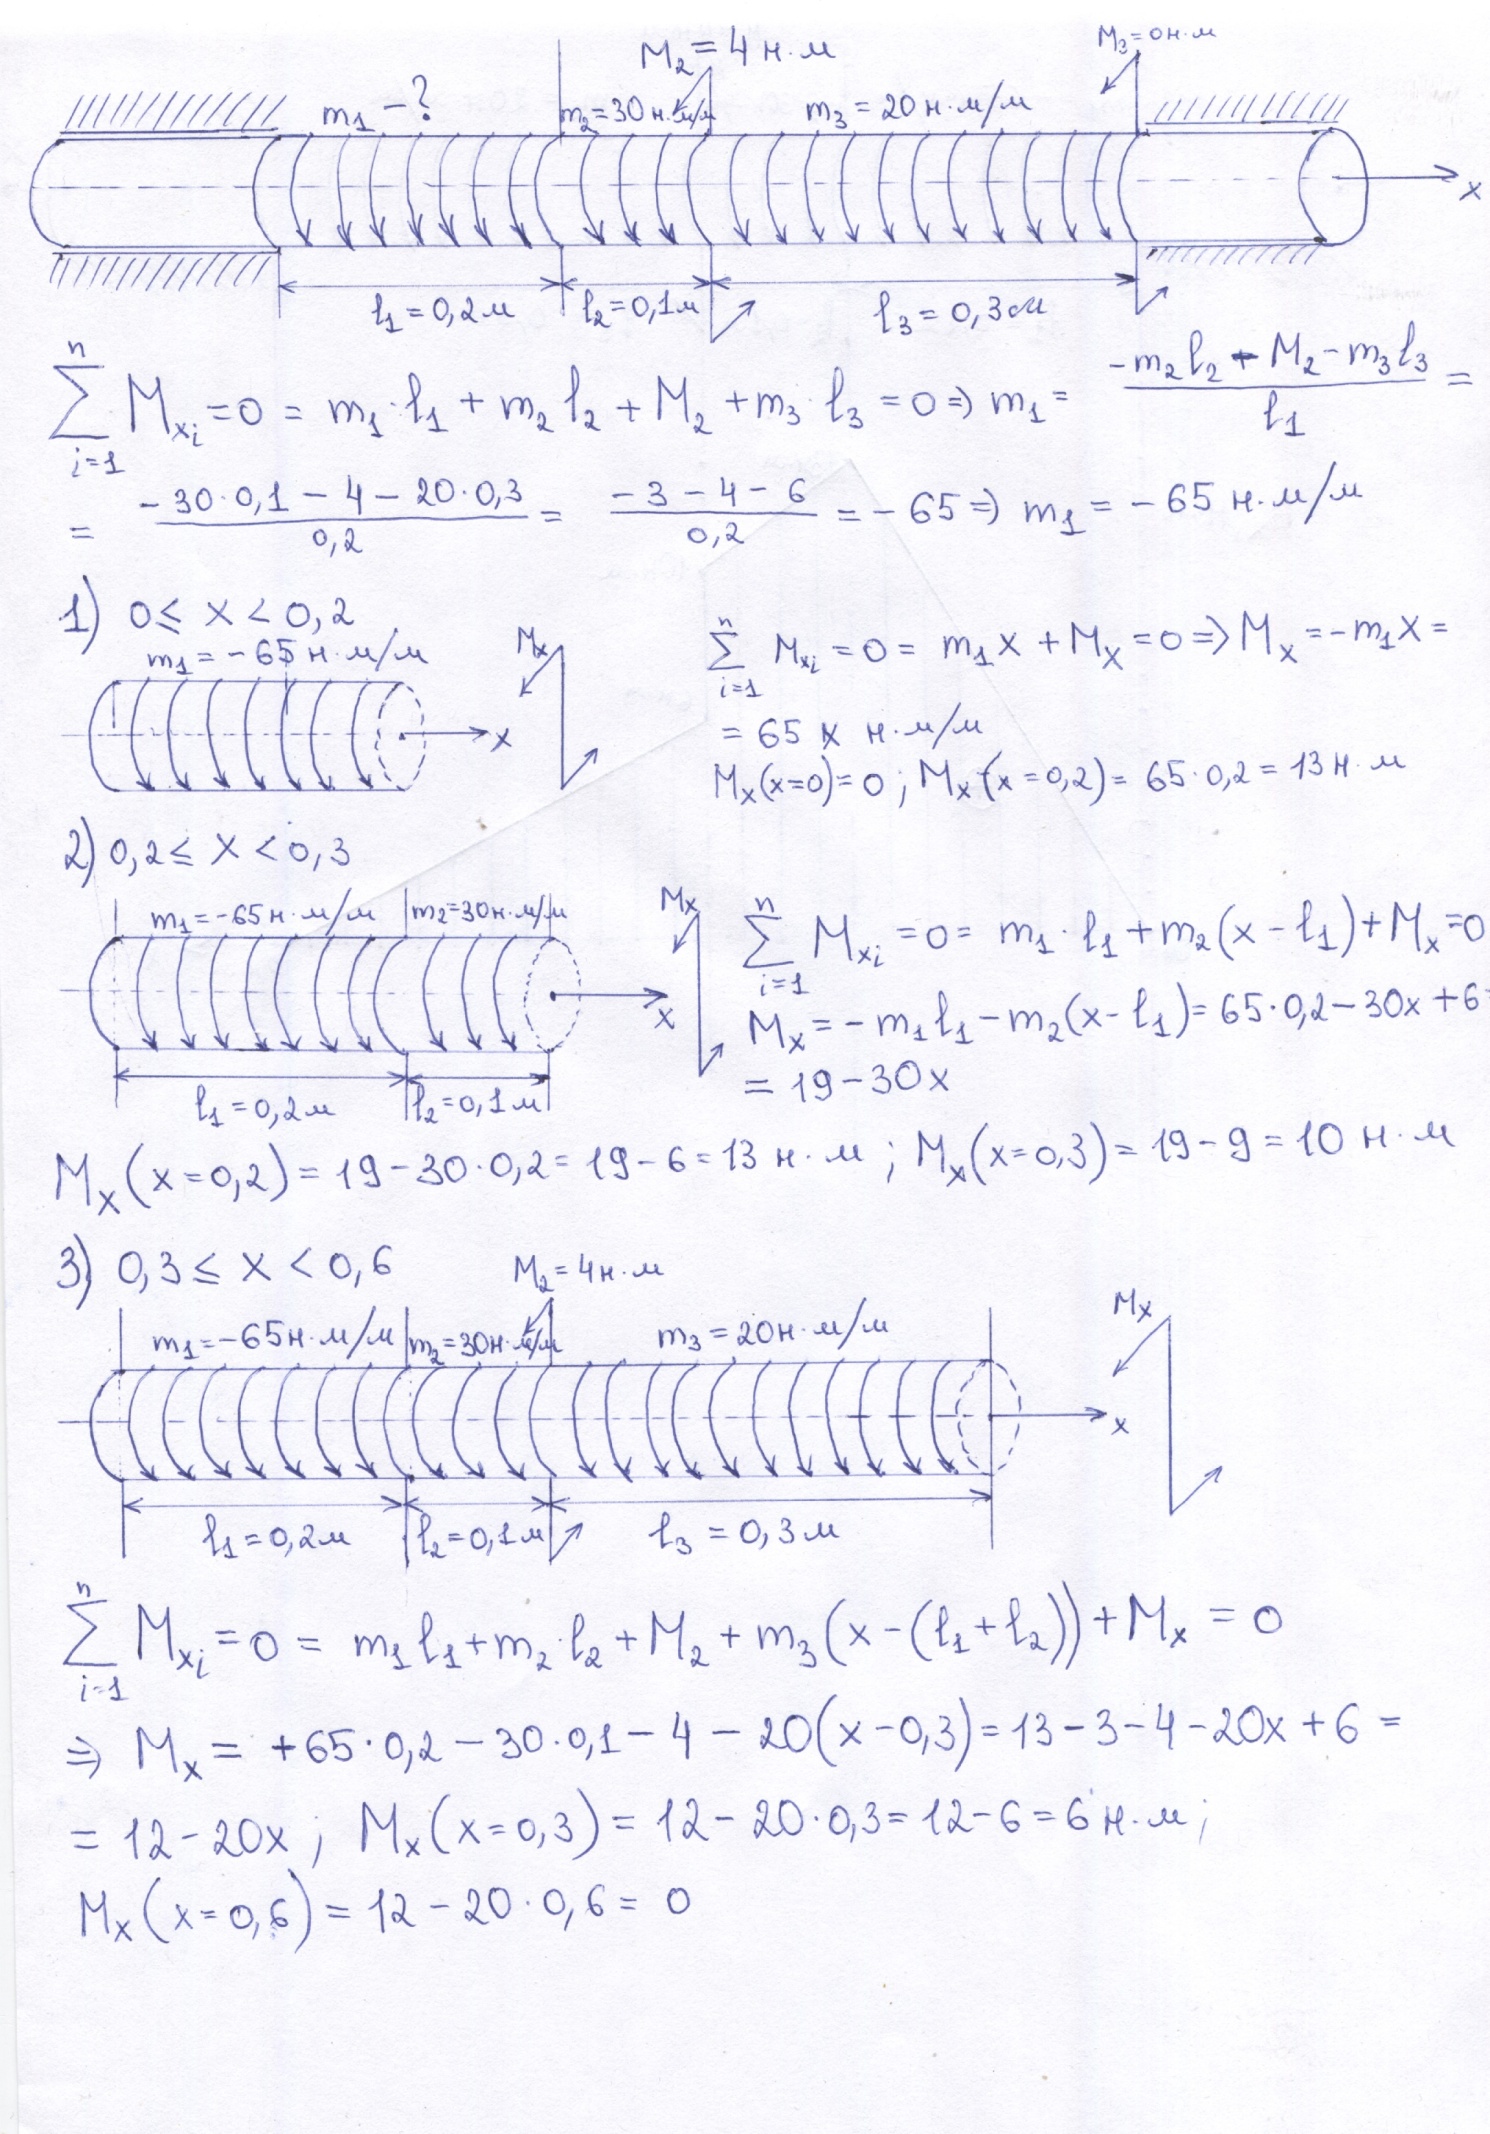 M₂ = 4 н·м
M₃ = 0 н·м
m₁ - ?
m₂ = 30 н·м/м
m₃ = 20 н·м/м
x
l₁ = 0,2 м
l₂ = 0,1 м
l₃ = 0,3 м
n ∑ i=1 M_{xᵢ} = 0 = m₁·l₁ + m₂l₂ + M₂ + m₃·l₃ = 0 ⇒ m₁ = (-m₂l₂ - M₂ - m₃l₃)/l₁ =
= (-30·0,1 - 4 - 20·0,3)/0,2 = (-3 - 4 - 6)/0,2 = -65 ⇒ m₁ = -65 н·м/м
1) 0 ≤ x < 0,2
m₁ = -65 н·м/м
Mₓ
x
n ∑ i=1 M_{xᵢ} = 0 = m₁x + Mₓ = 0 ⇒ Mₓ = -m₁x =
= 65 x н·м/м
Mₓ(x=0) = 0 ; Mₓ(x = 0,2) = 65·0,2 = 13 н·м
2) 0,2 ≤ x < 0,3
m₁ = -65 н·м/м
m₂ = 30 н·м/м
Mₓ
x
l₁ = 0,2 м
l₂ = 0,1 м
n ∑ i=1 M_{xᵢ} = 0 = m₁·l₁ + m₂(x - l₁) + Mₓ = 0
Mₓ = -m₁l₁ - m₂(x - l₁) = 65·0,2 - 30x + 6 =
= 19 - 30x
Mₓ(x = 0,2) = 19 - 30·0,2 = 19 - 6 = 13 н·м ; Mₓ(x = 0,3) = 19 - 9 = 10 н·м
3) 0,3 ≤ x < 0,6
M₂ = 4 н·м
m₁ = -65 н·м/м
m₂ = 30 н·м/м
m₃ = 20 н·м/м
Mₓ
x
l₁ = 0,2 м
l₂ = 0,1 м
l₃ = 0,3 м
n ∑ i=1 M_{xᵢ} = 0 = m₁l₁ + m₂·l₂ + M₂ + m₃(x - (l₁ + l₂)) + Mₓ = 0
⇒ Mₓ = +65·0,2 - 30·0,1 - 4 - 20(x - 0,3) = 13 - 3 - 4 - 20x + 6 =
= 12 - 20x ; Mₓ(x = 0,3) = 12 - 20·0,3 = 12 - 6 = 6 н·м ;
Mₓ(x = 0,6) = 12 - 20·0,6 = 0